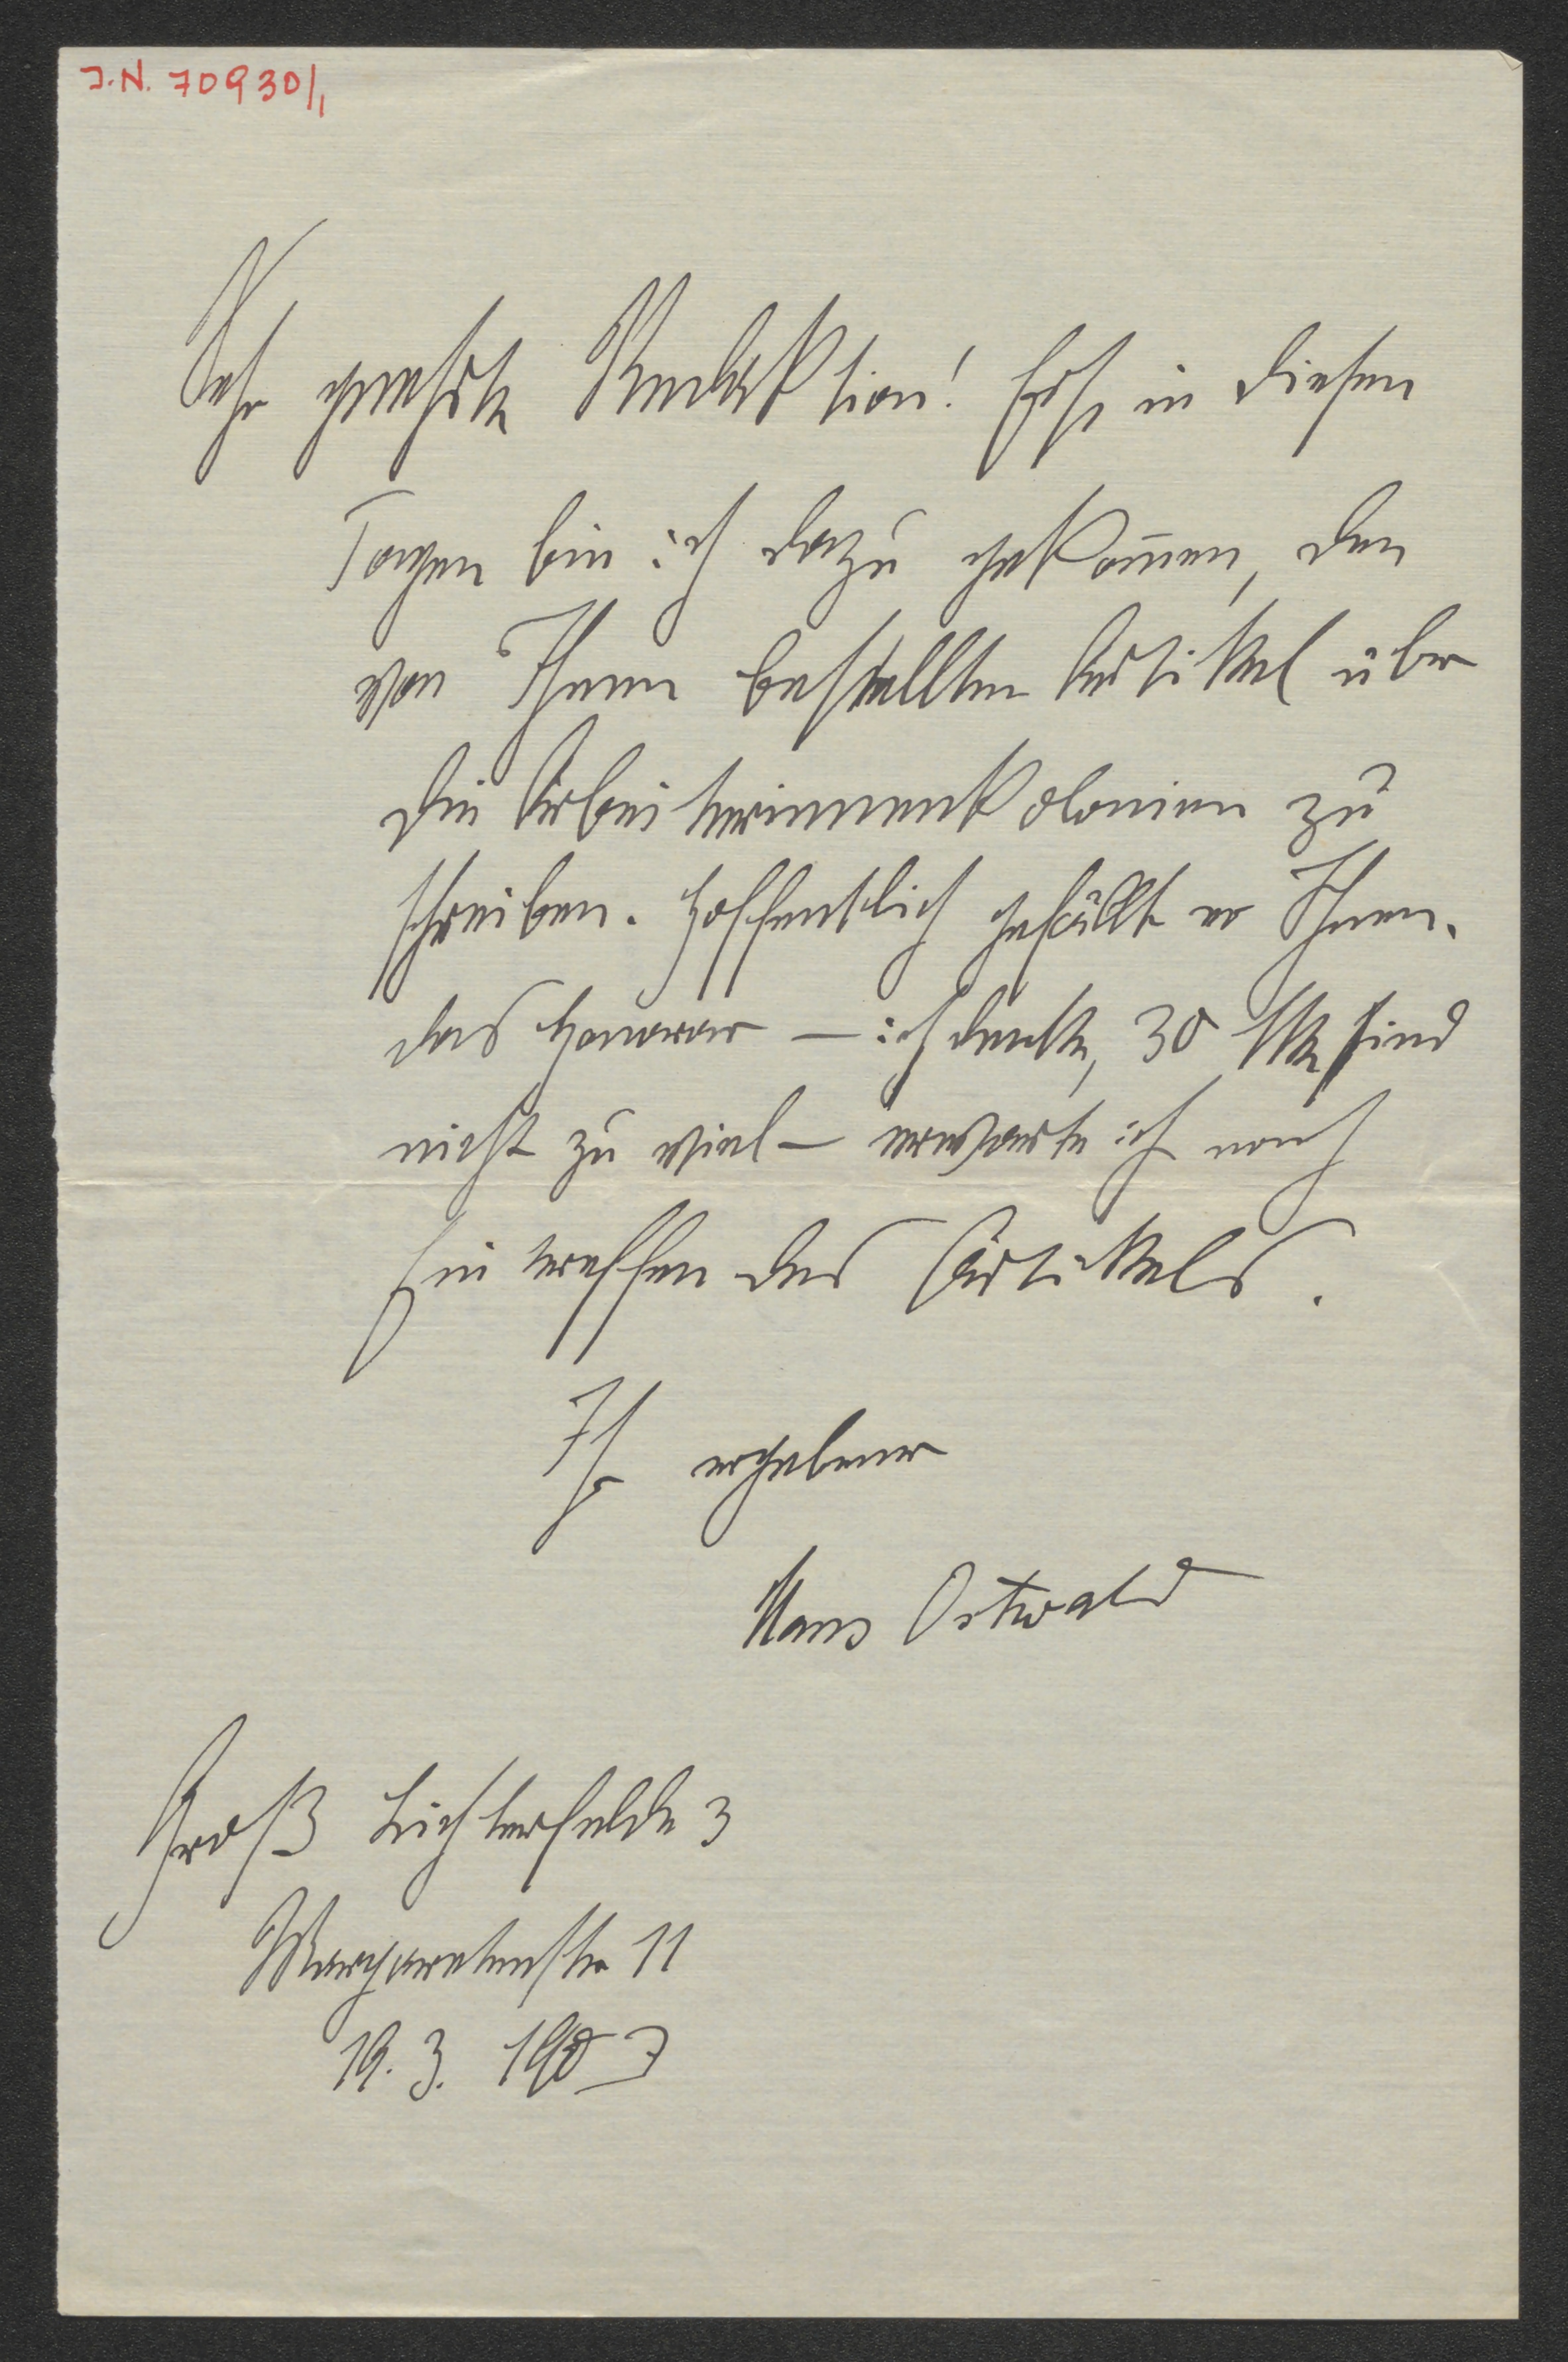 J.N. 70930/1
Sehr geehrte Redaktion! Erst in diesen
Tagen bin ich dazu gekom̄en, den
von Ihnen bestellten Artikel über
die Arbeiterinnenkolonien zu
schreiben. Hoffentlich gefällt er Ihnen.
Das Honorar – ich denke, 30 Mk sind
nicht zu viel – erwarte ich nach
Eintreffen des Artikels.
Ihr ergebener
Hans Ostwald
Groß Lichterfelde 3
Margaretenstr 11
19. 3. 1907